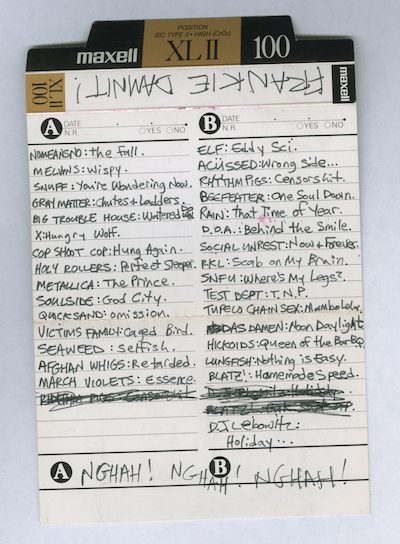 POSITION
IEC TYPE II • HIGH (CrO2)
maxell XL II 100
FRANKIE DAMNIT!
maxell
XL II 100
A DATE
N.R. YES NO
NOMEANSNO: the fall.
MELVINS: wispy.
SNUFF: You're Wondering Now.
GRAY MATTER: Chutes & Ladders.
BIG TROUBLE HOUSE: Watered Down
X: Hungry Wolf.
COP SHOOT COP: Hung Again.
HOLY ROLLERS: Perfect Sleeper.
METALLICA: The Prince.
SOULSIDE: God City.
QUICKSAND: omission.
VICTIMS FAMILY: Caged Bird.
SEAWEED: selfish.
AFGHAN WHIGS: Retarded.
MARCH VIOLETS: Essence.
B DATE
N.R. YES NO
ELF: Eddy Sci.
ACÜSSED: Wrong side...
RHYTHM PIGS: Censorshit.
BEEFEATER: One Soul Down.
RAIN: That Time of Year.
D.O.A.: Behind the Smile.
SOCIAL UNREST: Now & Forever.
RKL: Scab on My Brain.
SNFU: Where's My Legs?
TEST DEPT: T.N.P.
TUPELO CHAIN SEX:
DAS DAMEN: Noon Daylight
HICKOIDS: Queen of the Bar BQ
LUNGFISH: Nothing is Easy.
BLATZ!: Homemade Speed.
DJ Lebowitz:
Holiday...
A NGHAH! NGHAH! NGHAH!
B